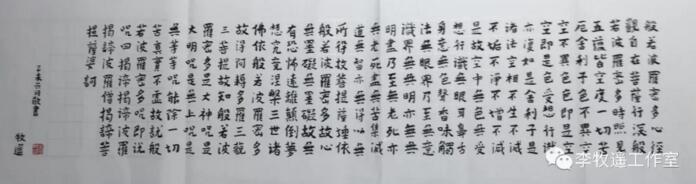 般若波羅密多心經
觀自在菩薩行深般
若波羅密多時照見
五蘊皆空度一切苦
厄舍利子色不異空
空不異色色即是空
空即是色受想行識
亦復如是舍利子是
諸法空相不生不滅
不垢不淨不增不減
是故空中無色無受
想行識無眼耳鼻舌
身意無色聲香味觸
法無眼界乃至無意
識界無無明亦無無
明盡乃至無老死亦
無老死盡無苦集滅
道無智亦無得以無
所得故菩提薩埵依
般若波羅密多故心
無罣礙無罣礙故無
有恐怖遠離顛倒夢
想究竟涅槃三世諸
佛依般若波羅密多
故得阿耨多羅三藐
三菩提故知般若波
羅密多是大神呪是
大明呪是無上呪是
無等等呪能除一切
苦真實不虛故說般
若波羅密多呪即說
呪曰揭諦揭諦波羅
揭諦波羅僧揭諦菩
提薩婆訶
六月敬書
牧遥
李牧遥工作室